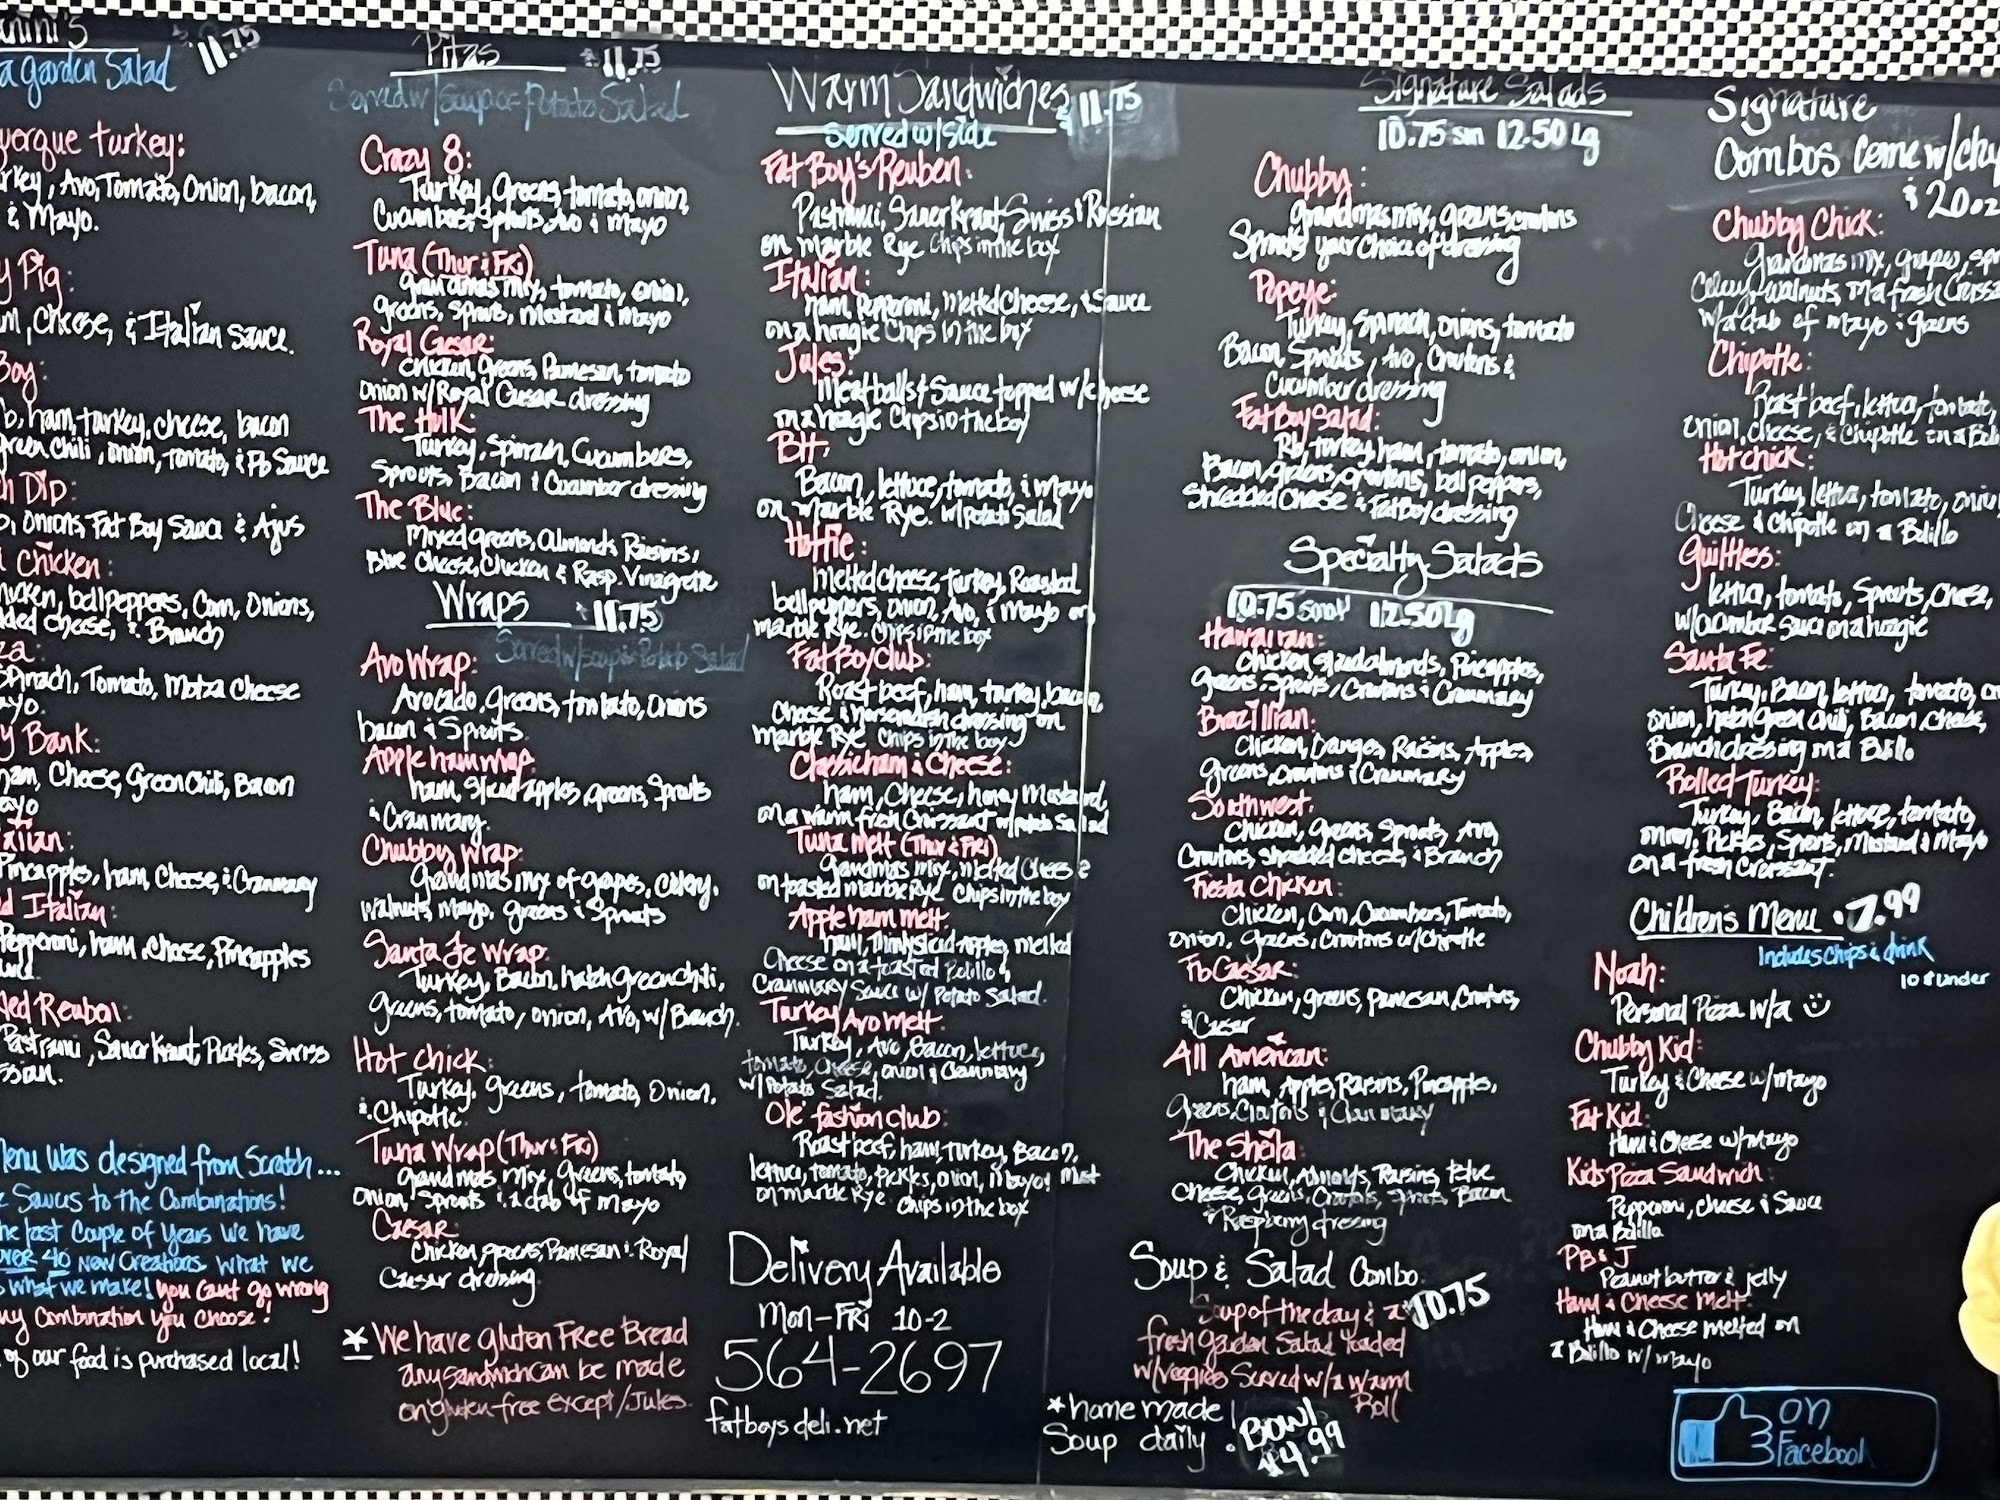 11.75
a garden Salad
uerque turkey:
rkey, Avo, Tomato, Onion, bacon,
& Mayo.
y Pig:
m, cheese, & Italian Sauce.
Boy:
b, ham, turkey, cheese, bacon
green chili, onion, tomato, & Fb Sauce
h Dip:
Onions, Fat Boy Sauce & Ajus
Chicken:
hicken, bell peppers, Corn, Onions,
ded cheese, & Branch
za:
Spinach, Tomato, Motza Cheese
ayo.
y Bank:
ham, Cheese, Green Chili, Bacon
ayo
aiian:
Pineapples, ham, Cheese, & Cranmary
d Italian:
Pepperoni, ham, cheese, Pineapples
led Reuben:
Pastrami, SauerKraut, Pickles, Swiss
ssian.
Menu was designed from Scratch...
e Sauces to the Combinations!
he past Couple of Years we have
over 40 new Creations. What we
s what we make! you can't go wrong
ny Combination you choose!
of our food is purchased local!
Pitas $11.75
Served w/Soup or Potato Salad
Crazy 8:
Turkey, Greens, tomato, onion,
Cucumbers, Sprouts, Avo & Mayo
Tuna (Thur & Fri)
Grandmas mix, tomato, onion,
greens, sprouts, mustard & mayo
Royal Caesar:
Chicken, Greens, Parmesan, tomato
onion w/Royal Caesar dressing
The Hulk:
Turkey, Spinach, Cucumbers,
Sprouts, Bacon & Cucumber dressing
The Blue:
Mixed greens, Almonds, Raisins,
Blue Cheese, Chicken & Rasp. Vinagrette
Wraps $11.75
Served w/soup or Potato Salad
Avo Wrap:
Avocado, greens, tomato, onions
bacon & Sprouts
Apple ham wrap
ham, sliced apples, greens, Sprouts
& Cranmary.
Chubby Wrap:
Grandmas mix of grapes, celery,
walnuts, mayo, greens & Sprouts
Santa Fe Wrap:
Turkey, Bacon, hatch green chili,
greens, tomato, onion, Avo, w/ Branch.
Hot Chick:
Turkey, greens, tomato, Onion,
& Chipotle
Tuna Wrap (Thur & Fri)
Grandmas mix, Greens, tomato,
onion, Sprouts & a dab of Mayo
Caesar:
Chicken, greens, Parmesan & Royal
Caesar dressing
* We have gluten FREE Bread
any sandwich can be made
on gluten free except/Jules.
Warm Sandwiches $11.75
Served w/side
Fat Boy's Reuben:
Pastrami, SauerKraut, Swiss & Russian
on marble Rye Chips in the box
Italian:
ham, Pepperoni, Melted Cheese, & Sauce
on a hoagie Chips in the box
Jules:
Meatballs & Sauce topped w/cheese
on a hoagie Chips in the box
Blt:
Bacon, lettuce, tomato, & mayo
on marble Rye. w/Potato Salad
Hottie:
Melted cheese, turkey, Roasted
bell peppers, onion, Avo, & Mayo on
marble Rye. Chips in the box
Fat Boy Club:
Roast beef, ham, turkey, bacon,
cheese & horseradish dressing on
marble Rye Chips in the box
Classic ham & Cheese:
ham, Cheese, honey Mustard,
on a warm fresh Croissant w/potato Salad
Tuna melt (Thur & Fri)
grandmas mix, melted Cheese
on toasted marble Rye Chips in the box
Apple ham melt:
ham, thinly sliced apples, melted
Cheese on a toasted Bolillo &
Cranmary Sauce w/ Potato Salad.
Turkey Avo melt:
Turkey, Avo, Bacon, lettuce,
tomato, Cheese, onion & Cranmary
w/Potato Salad.
Ole' fashion club:
Roast beef, ham, turkey, Bacon,
lettuce, tomato, Pickles, onion, Mayo & Must
on marble Rye Chips in the box
Delivery Available
Mon-Fri 10-2
564-2697
fatboysdeli.net
Signature Salads
10.75 sm 12.50 lg
Chubby:
grandmas mix, greens, croutons
Sprouts, your Choice of dressing
Popeye:
Turkey, Spinach, onions, tomato
Bacon, Sprouts, Avo, Croutons &
Cucumber dressing
Fat Boy Salad:
Rb, turkey, ham, tomato, onion,
Bacon, greens, croutons, bell peppers,
Shredded Cheese & Fat Boy dressing
Specialty Salads
10.75 small 12.50 lg
Hawaiian:
Chicken, sliced almonds, Pineapples,
greens, Sprouts, Croutons & Cranmary
Brazillian:
Chicken, Oranges, Raisins, Apples,
greens, croutons & Cranmary
Southwest:
Chicken, Greens, Sprouts, Avo,
Croutons, shredded cheese, & Branch
Fiesta Chicken:
Chicken, Corn, Cucumbers, Tomato,
onion, greens, Croutons w/Chipotle
Fb Caesar:
Chicken, greens, parmesan, Croutons,
& Caesar
All American:
ham, Apples, Raisins, Pineapples,
Greens, Croutons & Cranmary
The Sheila:
Chicken, Almonds, Raisins, Blue
cheese, greens, Croutons, Sprouts, Bacon
& Raspberry dressing
Soup & Salad Combo
Soup of the day & a $10.75
fresh garden Salad loaded
w/veggies Served w/a warm
Roll
* home made
Soup daily. Bowl
$4.99
Signature
Combos come w/chip
& 20oz
Chubby Chick:
Grandmas mix, grapes, spr
Celery, walnuts, on a fresh Croissa
w/a dab of mayo & greens
Chipotle:
Roast beef, lettuce, tomato,
onion, cheese, & Chipotle on a Boli
Hot chick:
Turkey, lettuce, tomato, onion
Cheese & Chipotle on a Bolillo
Guiltless:
lettuce, tomato, Sprouts, cheese,
w/cucumber sauce on a hoagie
Santa Fe:
Turkey, Bacon, lettuce, tomato,
onion, hatch green chili, Bacon, cheese,
Branch dressing on a Bolillo
Rolled Turkey:
Turkey, Bacon, lettuce, tomato,
onion, Pickles, Sprouts, Mustard & Mayo
on a fresh Croissant.
Children's Menu $7.99
Includes chips & drink
10 & under
Noah:
Personal Pizza w/a
Chubby Kid:
Turkey & Cheese w/mayo
Fat Kid:
Ham & Cheese w/Mayo
Kids Pizza Sandwich:
Pepperoni, cheese & Sauce
on a Bolillo
PB & J
Peanut butter & jelly
Ham & Cheese Melt:
Ham & Cheese melted on
a Bolillo w/mayo
on
Facebook